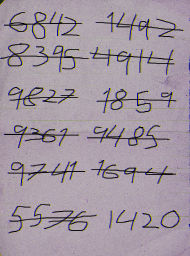 6842 1492
8395 4914
9827 1859
9361 9485
9741 1694
5576 1420